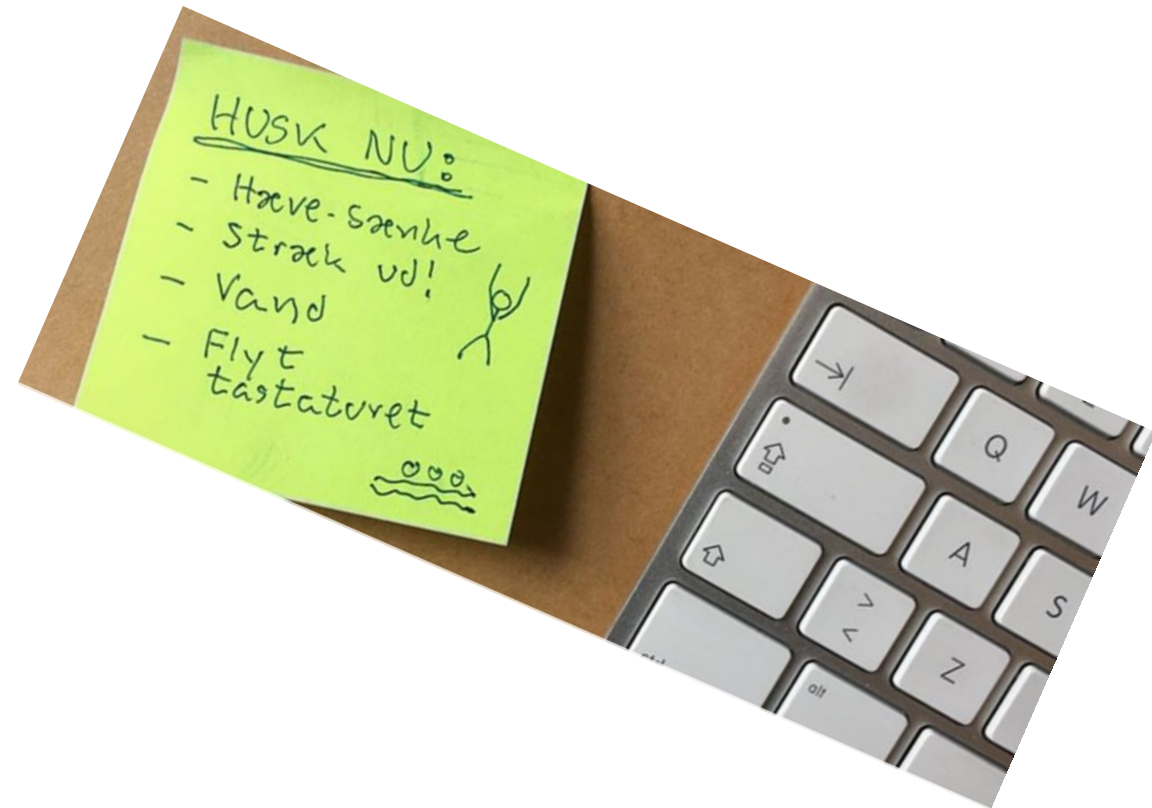 HUSK NU:
- Hæve-sænke
- Stræk ud!
- Vand
- Flyt
tastaturet
Q
W
A
S
>
<
Z
alt